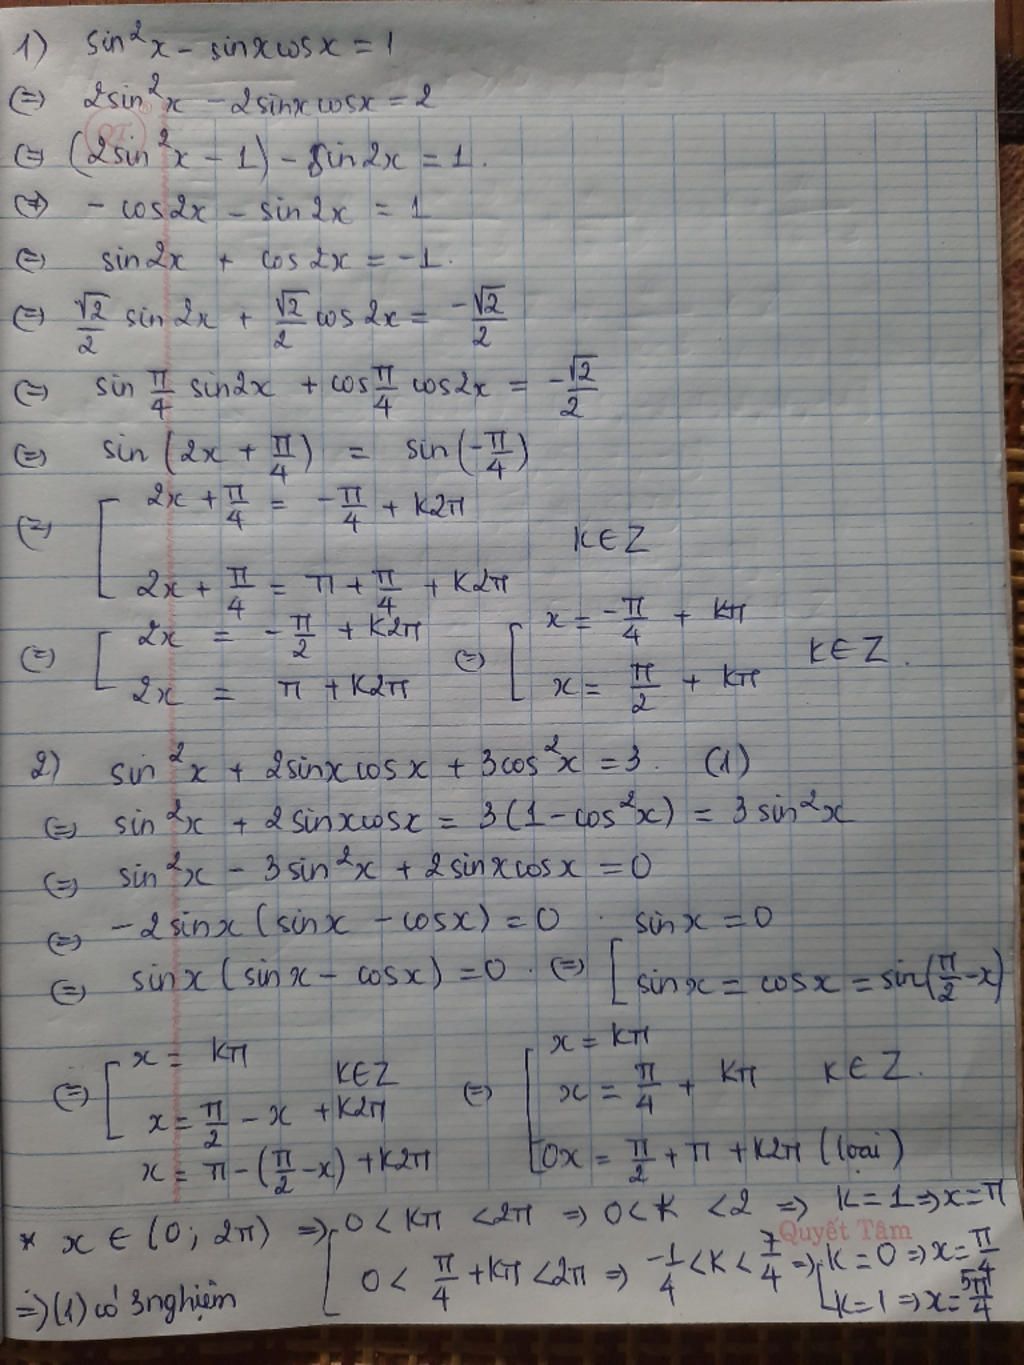 1) sin²x - sinxcosx = 1
(=) 2sin²x - 2sinxcosx = 2
(=) (2sin²x - 1) - sin2x = 1.
(=) - cos2x - sin2x = 1
(=) sin2x + cos2x = -1.
(=) √2/2 sin2x + √2/2 cos2x = -√2/2
(=) sin π/4 sin2x + cos π/4 cos2x = -√2/2
(=) sin(2x + π/4) = sin(-π/4)
(=) [ 2x + π/4 = -π/4 + K2π
K∈Z
2x + π/4 = π + π/4 + K2π
(=) [ 2x = -π/2 + K2π (=) [ x = -π/4 + Kπ K∈Z.
2x = π + K2π x = π/2 + Kπ
2) sin²x + 2sinxcosx + 3cos²x = 3. (1)
(=) sin²x + 2sinxcosx = 3(1-cos²x) = 3sin²x
(=) sin²x - 3sin²x + 2sinxcosx = 0
(=) -2sinx(sinx - cosx) = 0 . sinx = 0
(=) sinx(sinx - cosx) = 0 . (=) [ sinx = cosx = sin(π/2 - x)
(=) [ x = Kπ K∈Z (=) [ x = Kπ
x = π/2 - x + K2π x = π/4 + Kπ K∈Z.
x = π - (π/2 - x) + K2π 0x = π/2 + π + K2π (loại)
* x ∈ (0; 2π) => [ 0 < Kπ < 2π => 0 < K < 2 => K = 1 => x = π
Quyết Tâm
0 < π/4 + Kπ < 2π => -1/4 < K < 7/4 => [ K = 0 => x = π/4
=> (1) có 3 nghiệm K = 1 => x = 5π/4